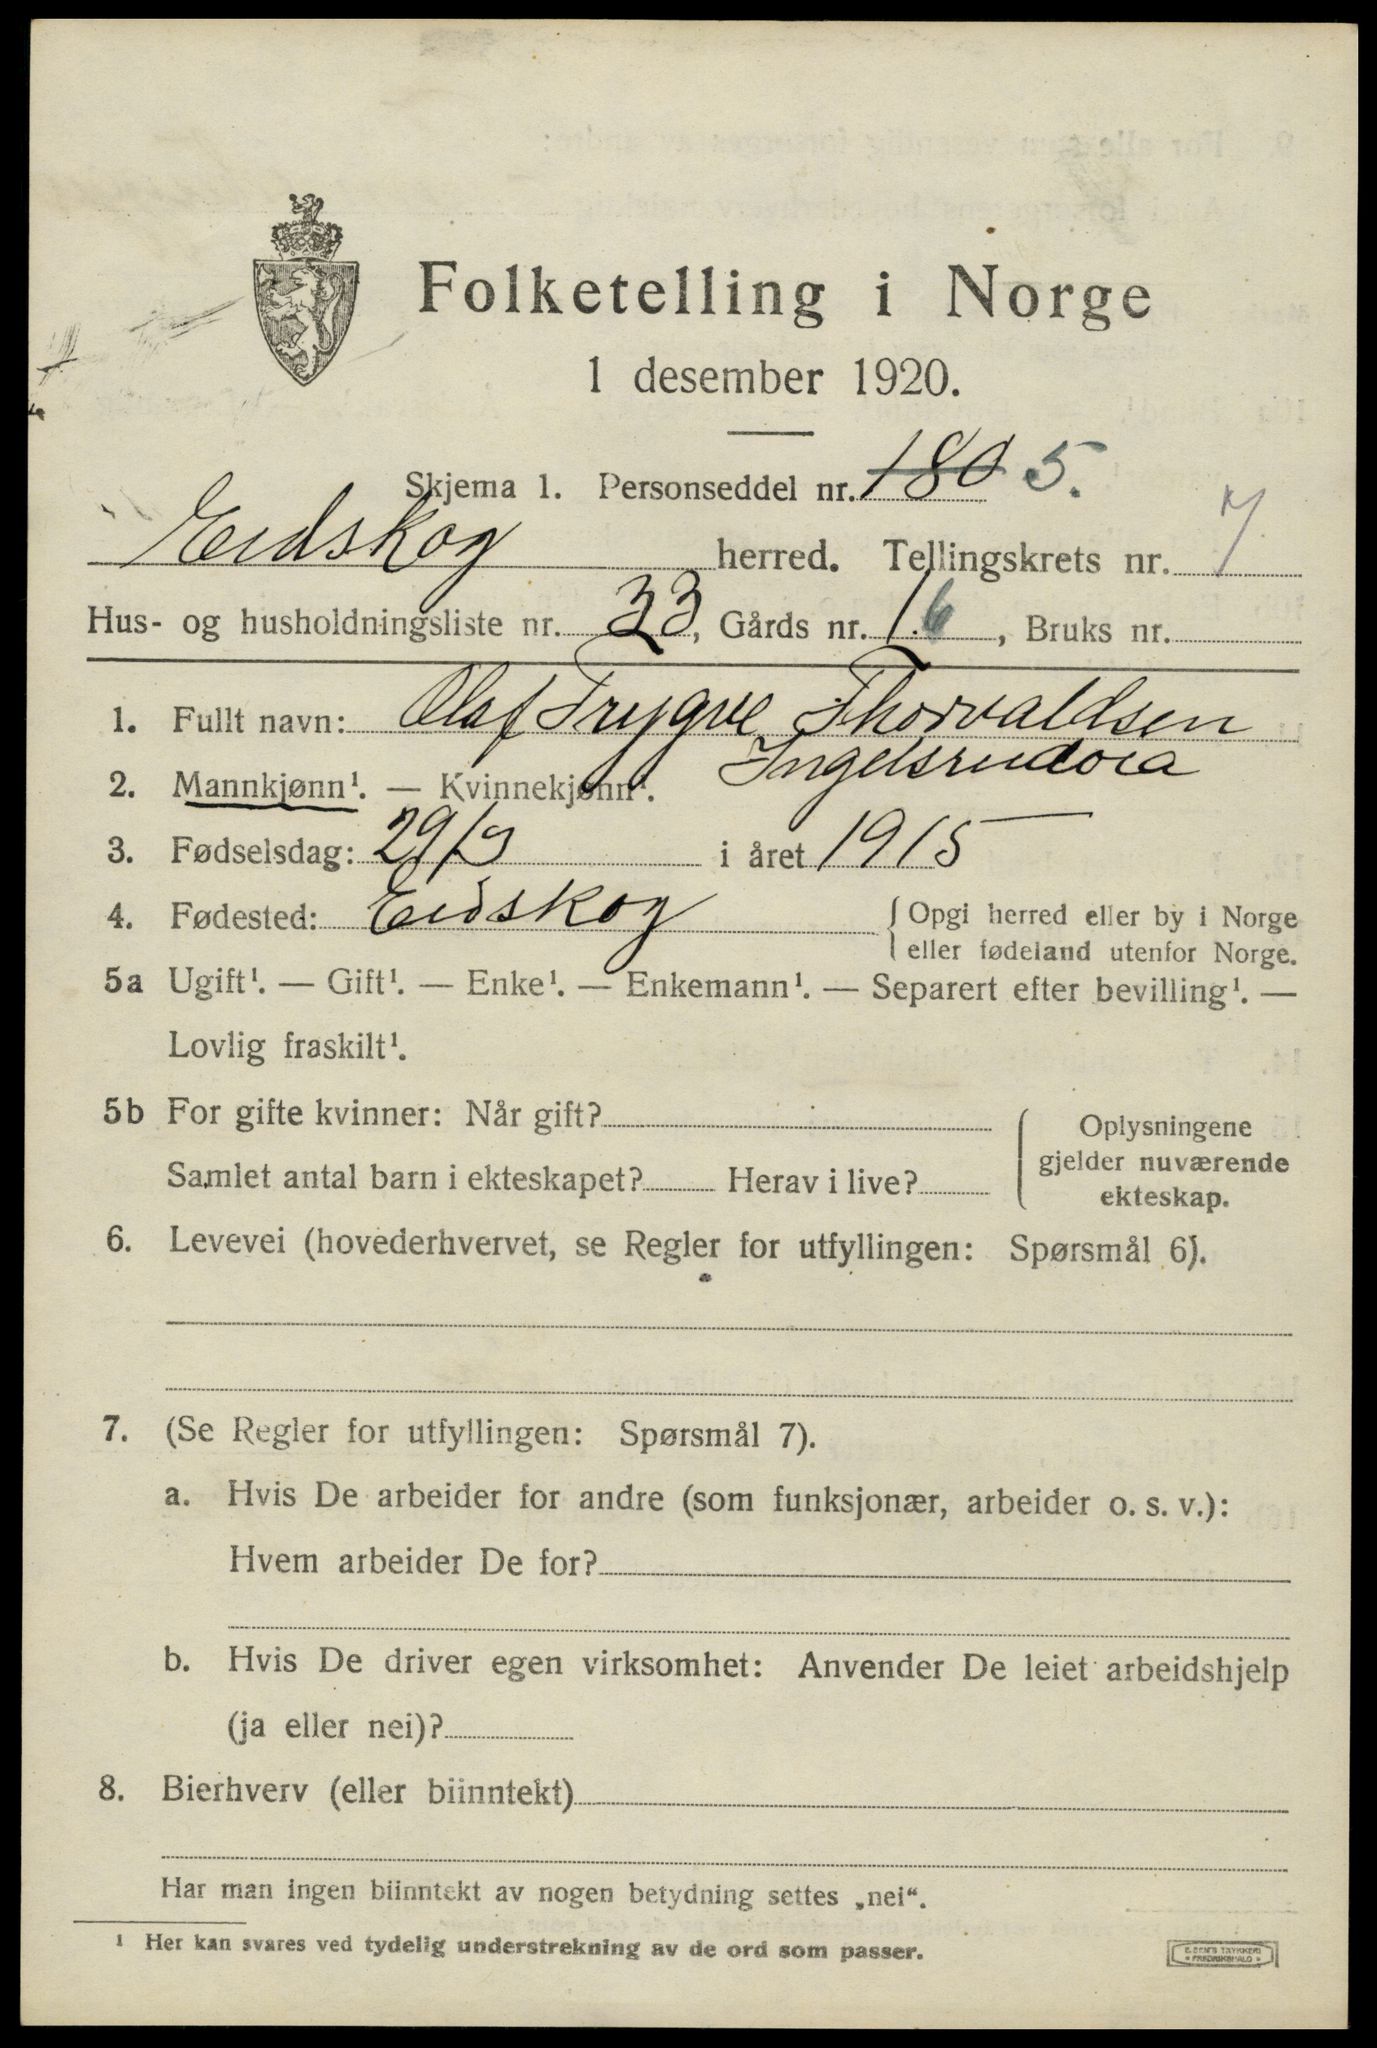 Folketelling i Norge
1 desember 1920.
Skjema 1. Personseddel nr. 180 5.
Eidskog herred. Tellingskrets nr. 7
Hus- og husholdningsliste nr. 33, Gårds nr. 1.6, Bruks nr.
1. Fullt navn: Olaf Trygve Thorvaldsen
Ingelsrudoia
2. Mannkjønn¹. — Kvinnekjønn¹.
3. Fødselsdag: 29/9 i året 1915
4. Fødested: Eidskog {Opgi herred eller by i Norge
eller fødeland utenfor Norge.
5a Ugift¹. — Gift¹. — Enke¹. — Enkemann¹. — Separert efter bevilling¹. —
Lovlig fraskilt¹.
5b For gifte kvinner: Når gift?
Samlet antal barn i ekteskapet? Herav i live?
Oplysningene
gjelder nuværende
ekteskap.
6. Levevei (hovederhvervet, se Regler for utfyllingen: Spørsmål 6).
7. (Se Regler for utfyllingen: Spørsmål 7).
a. Hvis De arbeider for andre (som funksjonær, arbeider o. s. v.):
Hvem arbeider De for?
b. Hvis De driver egen virksomhet: Anvender De leiet arbeidshjelp
(ja eller nei)?
8. Bierhverv (eller biinntekt)
Har man ingen biinntekt av nogen betydning settes „nei“.
¹ Her kan svares ved tydelig understrekning av de ord som passer.